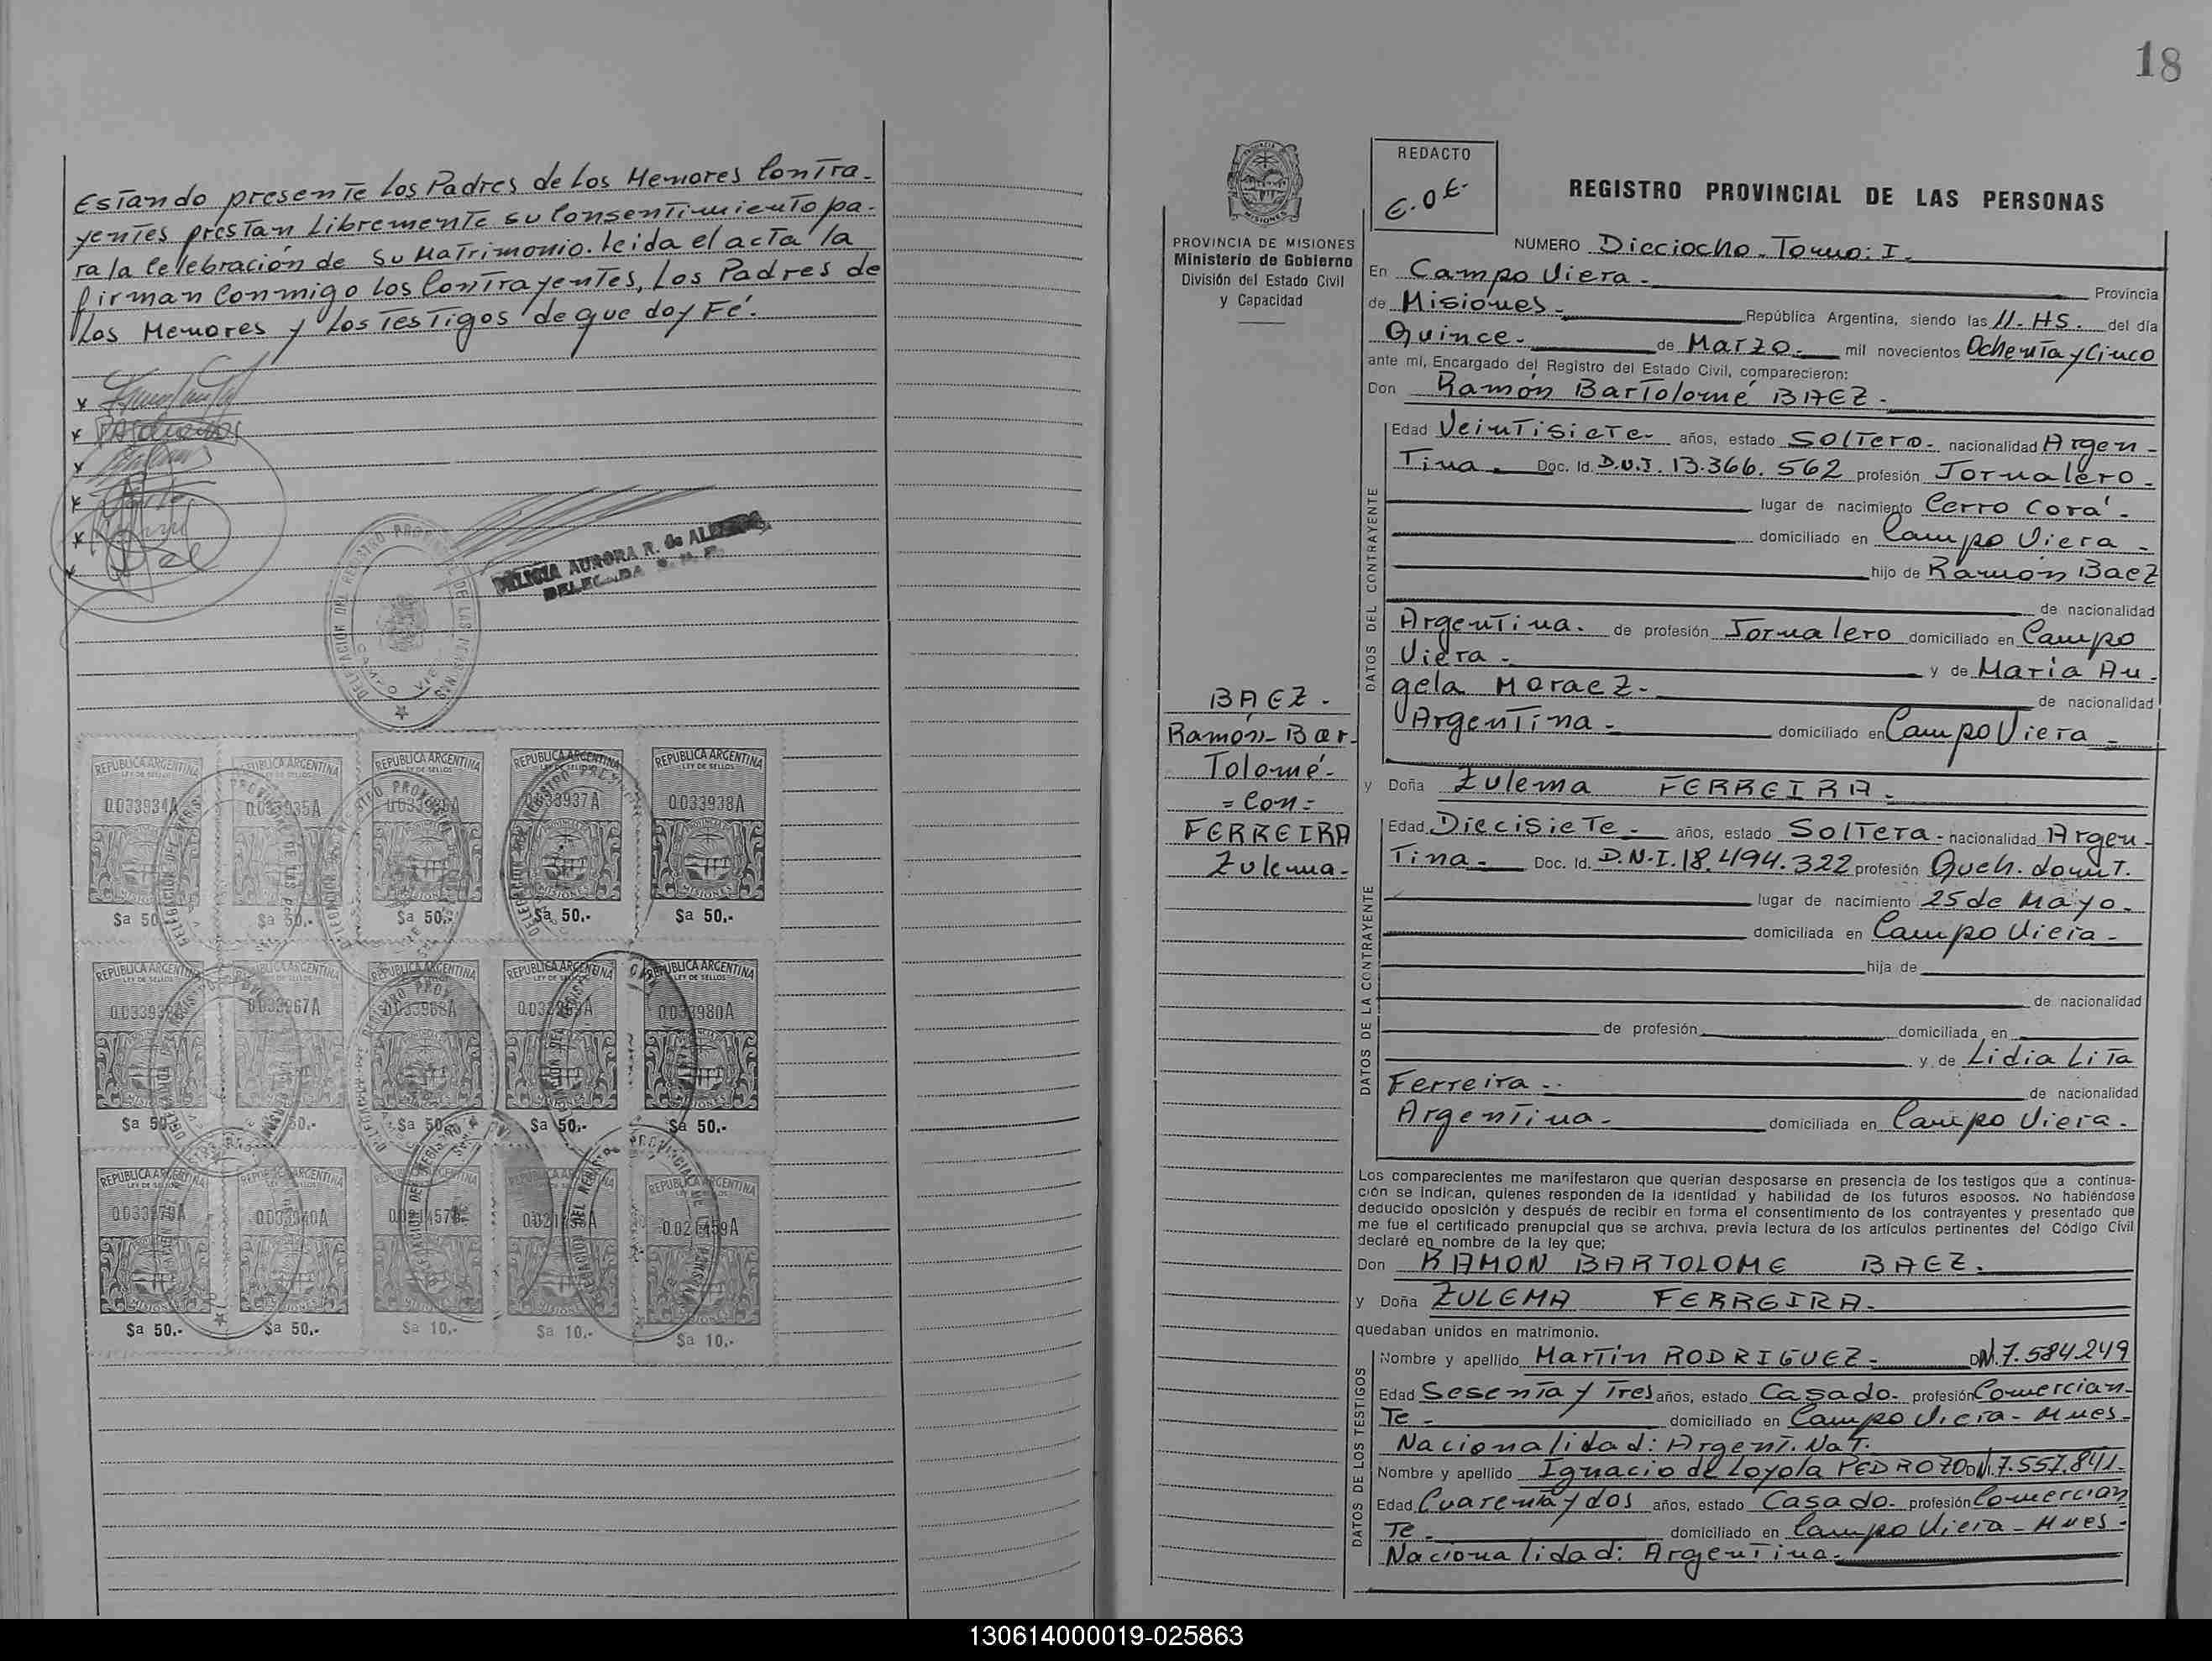 Estando presente los Padres de los Menores Contra-
yentes prestan libremente su Consentimiento pa-
ra la Celebración de su Matrimonio. leida el acta la
firman Conmigo los Contrayentes, los Padres de
los Menores y los testigos de que doy Fé.
DELICIA AURORA R. de
REPUBLICA ARGENTINA
LEY DE SELLOS
0.033934A
$a 50.-
REPUBLICA ARGENTINA
LEY DE SELLOS
0.033935A
$a 50.-
REPUBLICA ARGENTINA
LEY DE SELLOS
$a 50.-
REPUBLICA ARGENTINA
LEY DE SELLOS
0.033937A
$a 50.-
REPUBLICA ARGENTINA
LEY DE SELLOS
0.033938A
MISIONES
$a 50.-
REPUBLICA ARGENTINA
LEY DE SELLOS
$a 50.-
REPUBLICA ARGENTINA
0.033967A
$a 50.-
REPUBLICA ARGENTINA
0.033968A
$a 50.-
REPUBLICA ARGENTINA
LEY DE SELLOS
$a 50.-
REPUBLICA ARGENTINA
LEY DE SELLOS
0.033980A
$a 50.-
REPUBLICA ARGENTINA
LEY DE SELLOS
$a 50.-
REPUBLICA ARGENTINA
$a 50.-
REPUBLICA ARGENTINA
$a 10.-
REPUBLICA ARGENTINA
$a 10.-
REPUBLICA ARGENTINA
0.021459A
$a 10.-
18
PROVINCIA DE MISIONES
Ministerio de Gobierno
División del Estado Civil
y Capacidad
BAEZ.-
Ramón Bar-
Tolomé-
= Con =
FERREIRA
Zulema-
REDACTO
REGISTRO PROVINCIAL DE LAS PERSONAS
NUMERO Dieciocho. Tomo: I.
En Campo Viera.- Provincia
de Misiones.- República Argentina, siendo las 11. HS. del día
Quince.- de Marzo.- mil novecientos Ochenta y Cinco
ante mí, Encargado del Registro del Estado Civil, comparecieron:
Don Ramón Bartolomé BAEZ.-
DATOS DEL CONTRAYENTE
Edad Veintisiete- años, estado Soltero- nacionalidad Argen-
Tina.- Doc. Id. D.N.I. 13.366.562 profesión Jornalero-
lugar de nacimiento Cerro Corá-
domiciliado en Campo Viera-
hijo de Ramón Baez
de nacionalidad
Argentina. de profesión Jornalero domiciliado en Campo
Viera- y de Maria An-
gela Moraez- de nacionalidad
Argentina- domiciliado en Campo Viera-
y Doña Zulema FERREIRA-
DATOS DE LA CONTRAYENTE
Edad Diecisiete- años, estado Soltera- nacionalidad Argen-
Tina- Doc. Id. D.N.I. 18.494.322 profesión Queh. domt.
lugar de nacimiento 25 de Mayo-
domiciliada en Campo Viera-
hija de
de nacionalidad
de profesión domiciliada en
y de Lidia Lita
Ferreira.. de nacionalidad
Argentina- domiciliada en Campo Viera-
Los comparecientes me manifestaron que querían desposarse en presencia de los testigos que a continua-
ción se indican, quienes responden de la identidad y habilidad de los futuros esposos. No habiéndose
deducido oposición y después de recibir en forma el consentimiento de los contrayentes y presentado que
me fue el certificado prenupcial que se archiva, previa lectura de los artículos pertinentes del Código Civil
declaré en nombre de la ley que;
Don RAMON BARTOLOME BAEZ.
y Doña ZULEMA FERREIRA.-
quedaban unidos en matrimonio.
DATOS DE LOS TESTIGOS
Nombre y apellido Martín RODRIGUEZ- DNI.7.584.249
Edad Sesenta y Tres años, estado Casado- profesión Comercian-
Te- domiciliado en Campo Viera- Mnes-
Nacionalidad: Argent. Nat.
Nombre y apellido Ignacio de Loyola PEDROZO DNI.7.557.841-
Edad Cuarenta y dos años, estado Casado- profesión Comercian
Te- domiciliado en Campo Viera- Mnes-
Nacionalidad: Argentina-
130614000019-025863